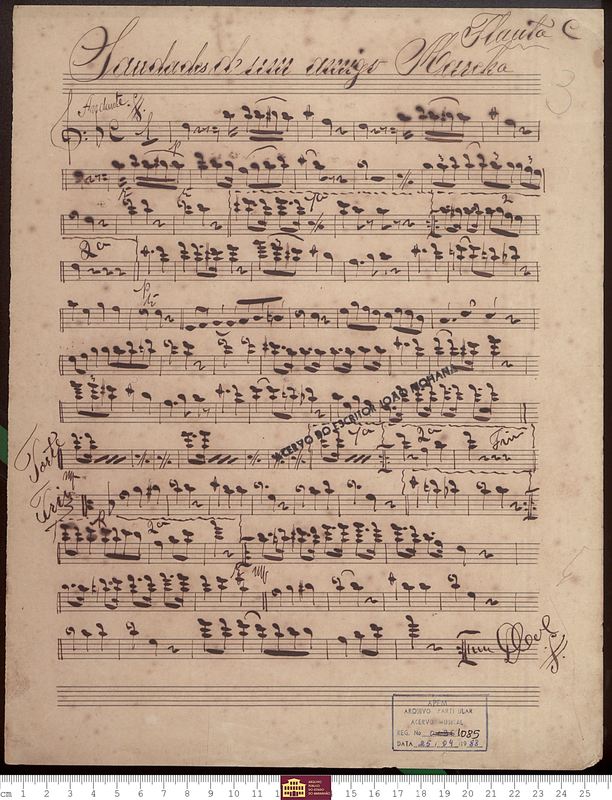 Flauta C
Saudades de um amigo Marcha
3
Andante
1a
2
2a
ACERVO DO ESCRITOR JOÃO MOHANA
1a 2a Fim
Forte
Trio
2a
APEM
ARQUIVO PARTICULAR
ACERVO MUSICAL
REG. No 1085
DATA 25, 04, 1988
cm 1 2 3 4 5 6 7 8 9 10 11 12 13 14 15 16 17 18 19 20 21 22 23 24 25
ARQUIVO
PÚBLICO
DO ESTADO
DO MARANHÃO